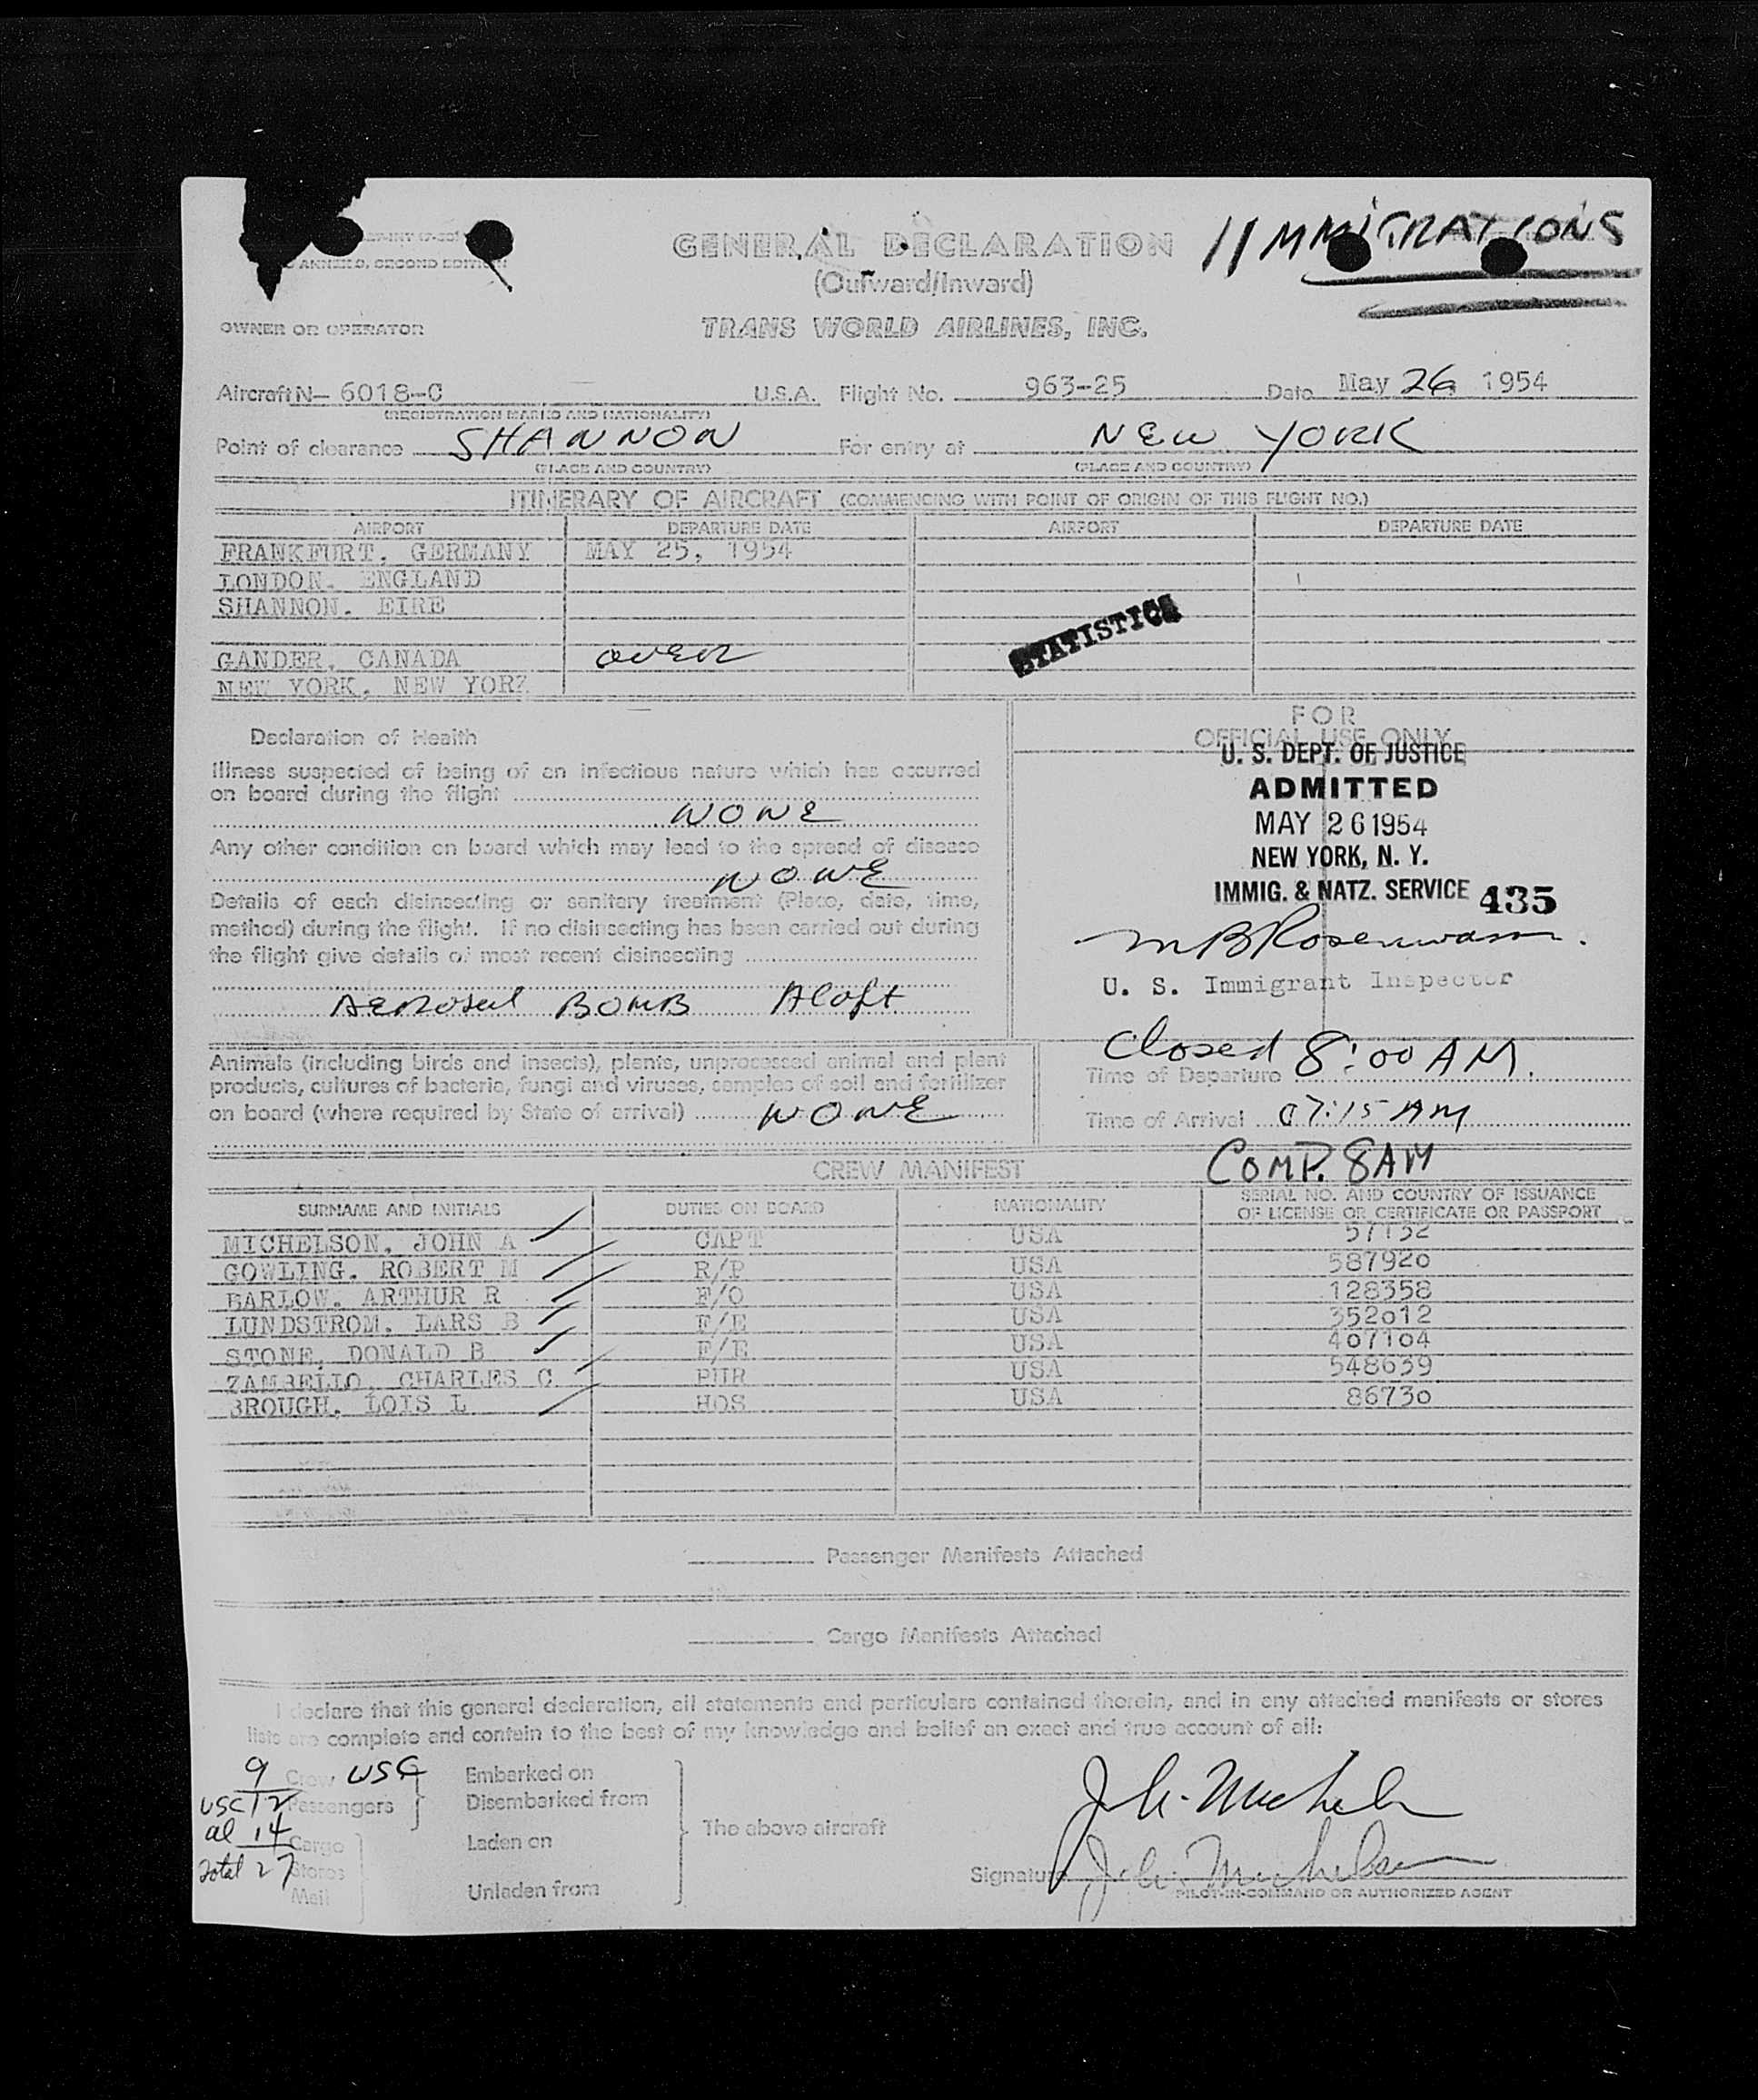 ANNEX 9, SECOND EDITION
GENERAL DECLARATION
IMMIGRATIONS
(Outward/Inward)
OWNER OR OPERATOR
TRANS WORLD AIRLINES, INC.
Aircraft N- 6018-C U.S.A. Flight No. 963-25 Date May 26 1954
(REGISTRATION MARKS AND NATIONALITY)
Point of clearance SHANNON For entry at NEW YORK
(PLACE AND COUNTRY) (PLACE AND COUNTRY)
ITINERARY OF AIRCRAFT (COMMENCING WITH POINT OF ORIGIN OF THIS FLIGHT NO.)
AIRPORT DEPARTURE DATE AIRPORT DEPARTURE DATE
FRANKFURT, GERMANY MAY 25, 1954
LONDON, ENGLAND
SHANNON, EIRE
STATISTICS
GANDER, CANADA OVER
NEW YORK, NEW YORK
Declaration of Health
Illness suspected of being of an infectious nature which has occurred
on board during the flight
NONE
Any other condition on board which may lead to the spread of disease
NONE
Details of each disinsecting or sanitary treatment (Place, date, time,
method) during the flight. If no disinsecting has been carried out during
the flight give details of most recent disinsecting
Aerosul BOMB Aloft
FOR
OFFICIAL USE ONLY
U. S. DEPT. OF JUSTICE
ADMITTED
MAY 26 1954
NEW YORK, N. Y.
IMMIG. & NATZ. SERVICE 435
U. S. Immigrant Inspector
Animals (including birds and insects), plants, unprocessed animal and plant
products, cultures of bacteria, fungi and viruses, samples of soil and fertilizer
on board (where required by State of arrival) NONE
Closed 8:00 AM.
Time of Departure
Time of Arrival 07:15 AM
COMP. 8AM
CREW MANIFEST
SURNAME AND INITIALS DUTIES ON BOARD NATIONALITY SERIAL NO. AND COUNTRY OF ISSUANCE
OF LICENSE OR CERTIFICATE OR PASSPORT
MICHELSON, JOHN A CAPT USA 57132
GOWLING, ROBERT M R/P USA 587920
BARLOW, ARTHUR R F/O USA 128358
LUNDSTROM, LARS B F/E USA 352012
STONE, DONALD B F/E USA 407104
ZAMBELLO, CHARLES C PUR USA 548639
BROUGH, LOIS L HOS USA 86730
Passenger Manifests Attached
Cargo Manifests Attached
I declare that this general declaration, all statements and particulars contained therein, and in any attached manifests or stores
lists are complete and contain to the best of my knowledge and belief an exact and true account of all:
9 Crew USC Embarked on
USC 12 Passengers Disembarked from
al 14 Cargo Laden on The above aircraft
Total 27 Stores
Mail Unladen from
Signature
PILOT-IN-COMMAND OR AUTHORIZED AGENT